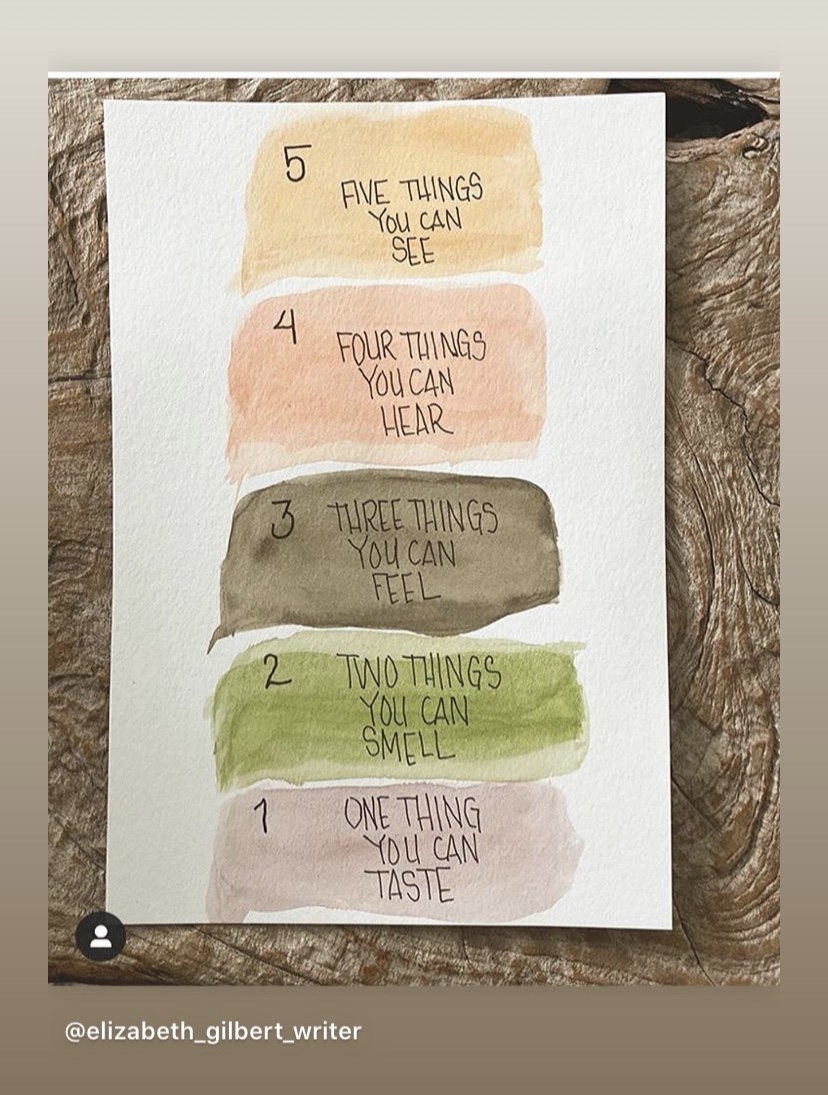 5
FIVE THINGS
YOU CAN
SEE
4
FOUR THINGS
YOU CAN
HEAR
3
THREE THINGS
YOU CAN
FEEL
2
TWO THINGS
YOU CAN
SMELL
1
ONE THING
YOU CAN
TASTE
@elizabeth_gilbert_writer